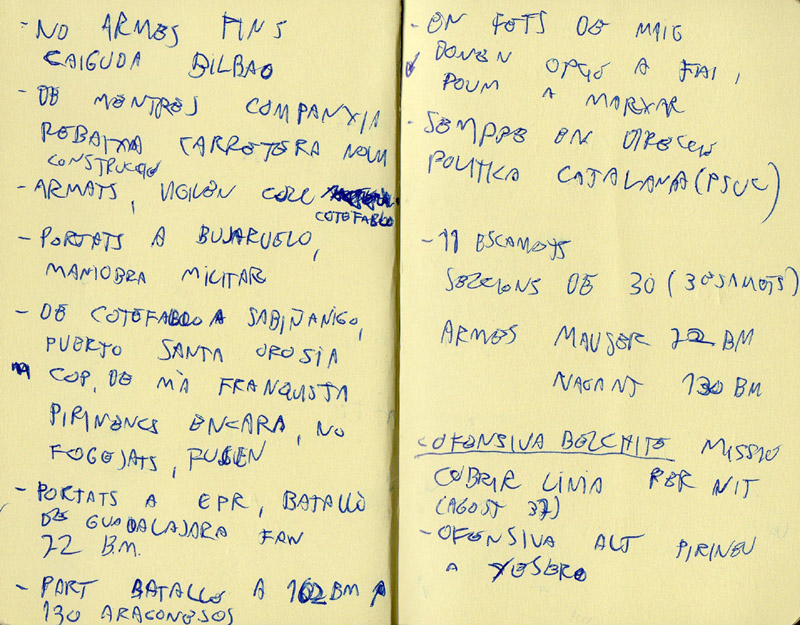 - NO ARMES FINS
CAIGUDA BILBAO
- DE MENTRES COMPANYIA
REBAIXA CARRETERA NOVA
CONSTRUCCIO
- ARMATS, VIGILEN COLL
COTEFABLO
- PORTATS A BUJARUELO,
MANIOBRA MILITAR
- DE COTEFABLO A SABIÑANIGO,
PUERTO SANTA OROSIA
COP, DE MÀ FRANQUISTA
PIRINENCS ENCARA, NO
FOGEJATS, FUGEN
- PORTATS A EPR, BATALLÒ
DE GUADALAJARA FAN
72 B.M.
- PART BATALLO A 102 BM A
130 ARAGONESOS
- EN FETS DE MAIG
DONEN OPCIÓ A FAI,
POUM A MARXAR
- SEMPRE EN DIRECCIO
POLITICA CATALANA (PSUC)
- 11 ESCAMOTS
SECCIONS DE 30 (3 ESCAMOTS)
ARMES MAUSER 72 BM
NAGANT 130 BM
OFENSIVA BELCHITE MISSIO
COBRIR LINIA PER NIT
(AGOST 37)
- OFENSIVA ALT PIRINEU
A YESERO